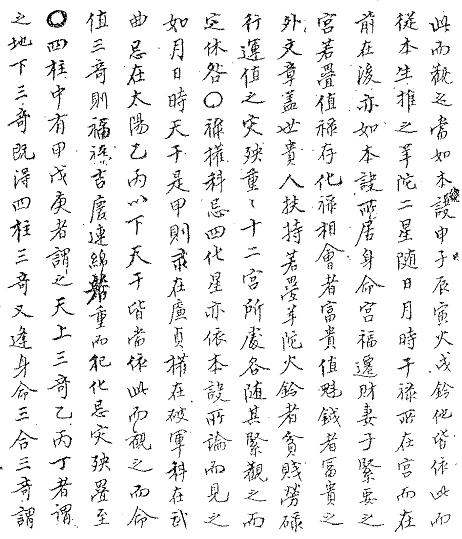 此而觀之當如本設甲子辰寅火戌鈴他皆依此而
從本生推之羊陀二星隨日月時干祿所在宮而在
前在後亦如本設所居身命宮福遷財妻子緊要之
宮若疊值祿存化祿相會者富貴值魁鉞者富貴之
外文章蓋世貴人扶持若疊羊陀火鈴者貧賤勞碌
行運值之灾殃重〻十二宮所處各隨其緊觀之而
定休咎〇祿權科忌四化星亦依本設所論而見之
如月日時天干是甲則彔在廉貞權在破軍科在武
曲忌在太陽乙丙以下天干皆當依此而觀之而命
值三竒則福祿吉慶連綿重而犯化忌灾殃疊至
〇四柱中有甲戊庚者謂之天上三竒乙丙丁者謂
之地下三竒既得四柱三竒又逢身命三合三竒謂